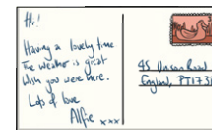 Hi!
Having a lovely time
The weather is great
Wish you were here.
Lots of love
Alfie xxx
45
England, PT17 3